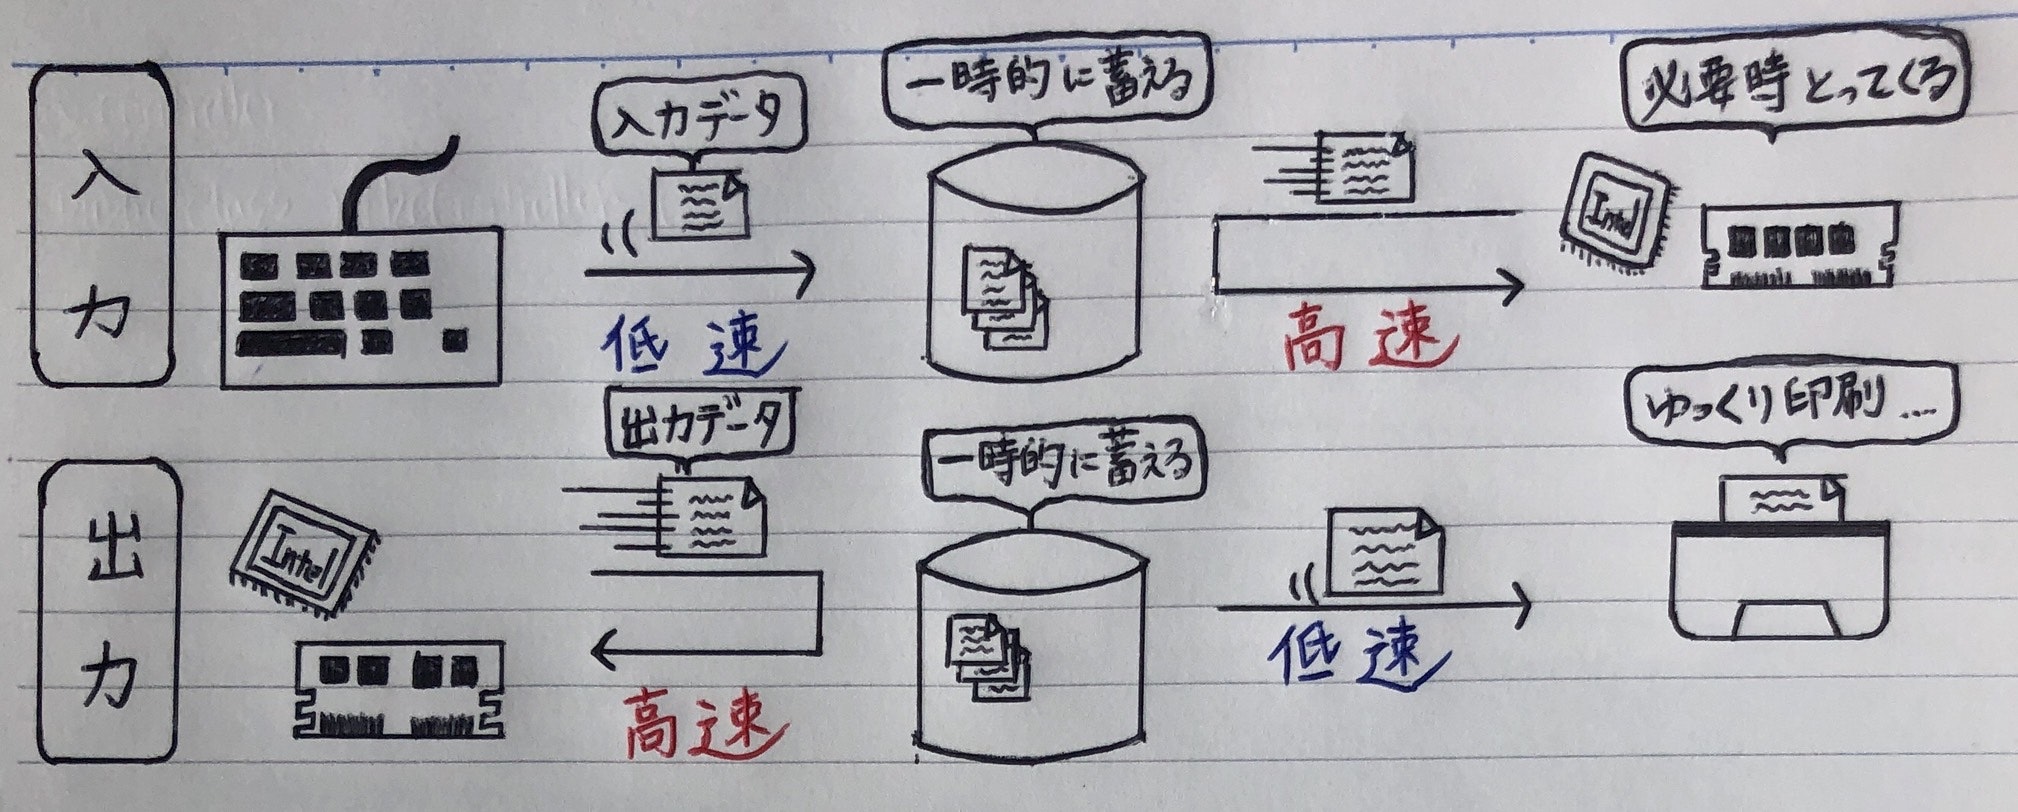 入力
入力データ
低速
一時的に蓄える
高速
必要時とってくる
Intel
出力
Intel
出力データ
高速
一時的に蓄える
低速
ゆっくり印刷....